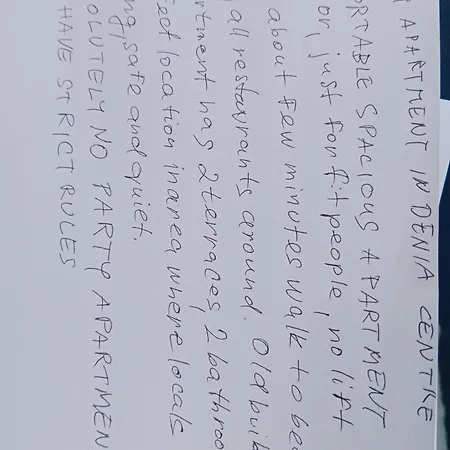 APARTMENT IN DENIA CENTRE
RTABLE SPACIOUS APARTMENT
or, just for fit people, no lift
about few minutes walk to be
all restaurants around. Old buil
rtment has 2 terraces, 2 bathroo
ect location in area where locals
ng, safe and quiet.
OLUTELY NO PARTY APARTMEN
HAVE STRICT RULES